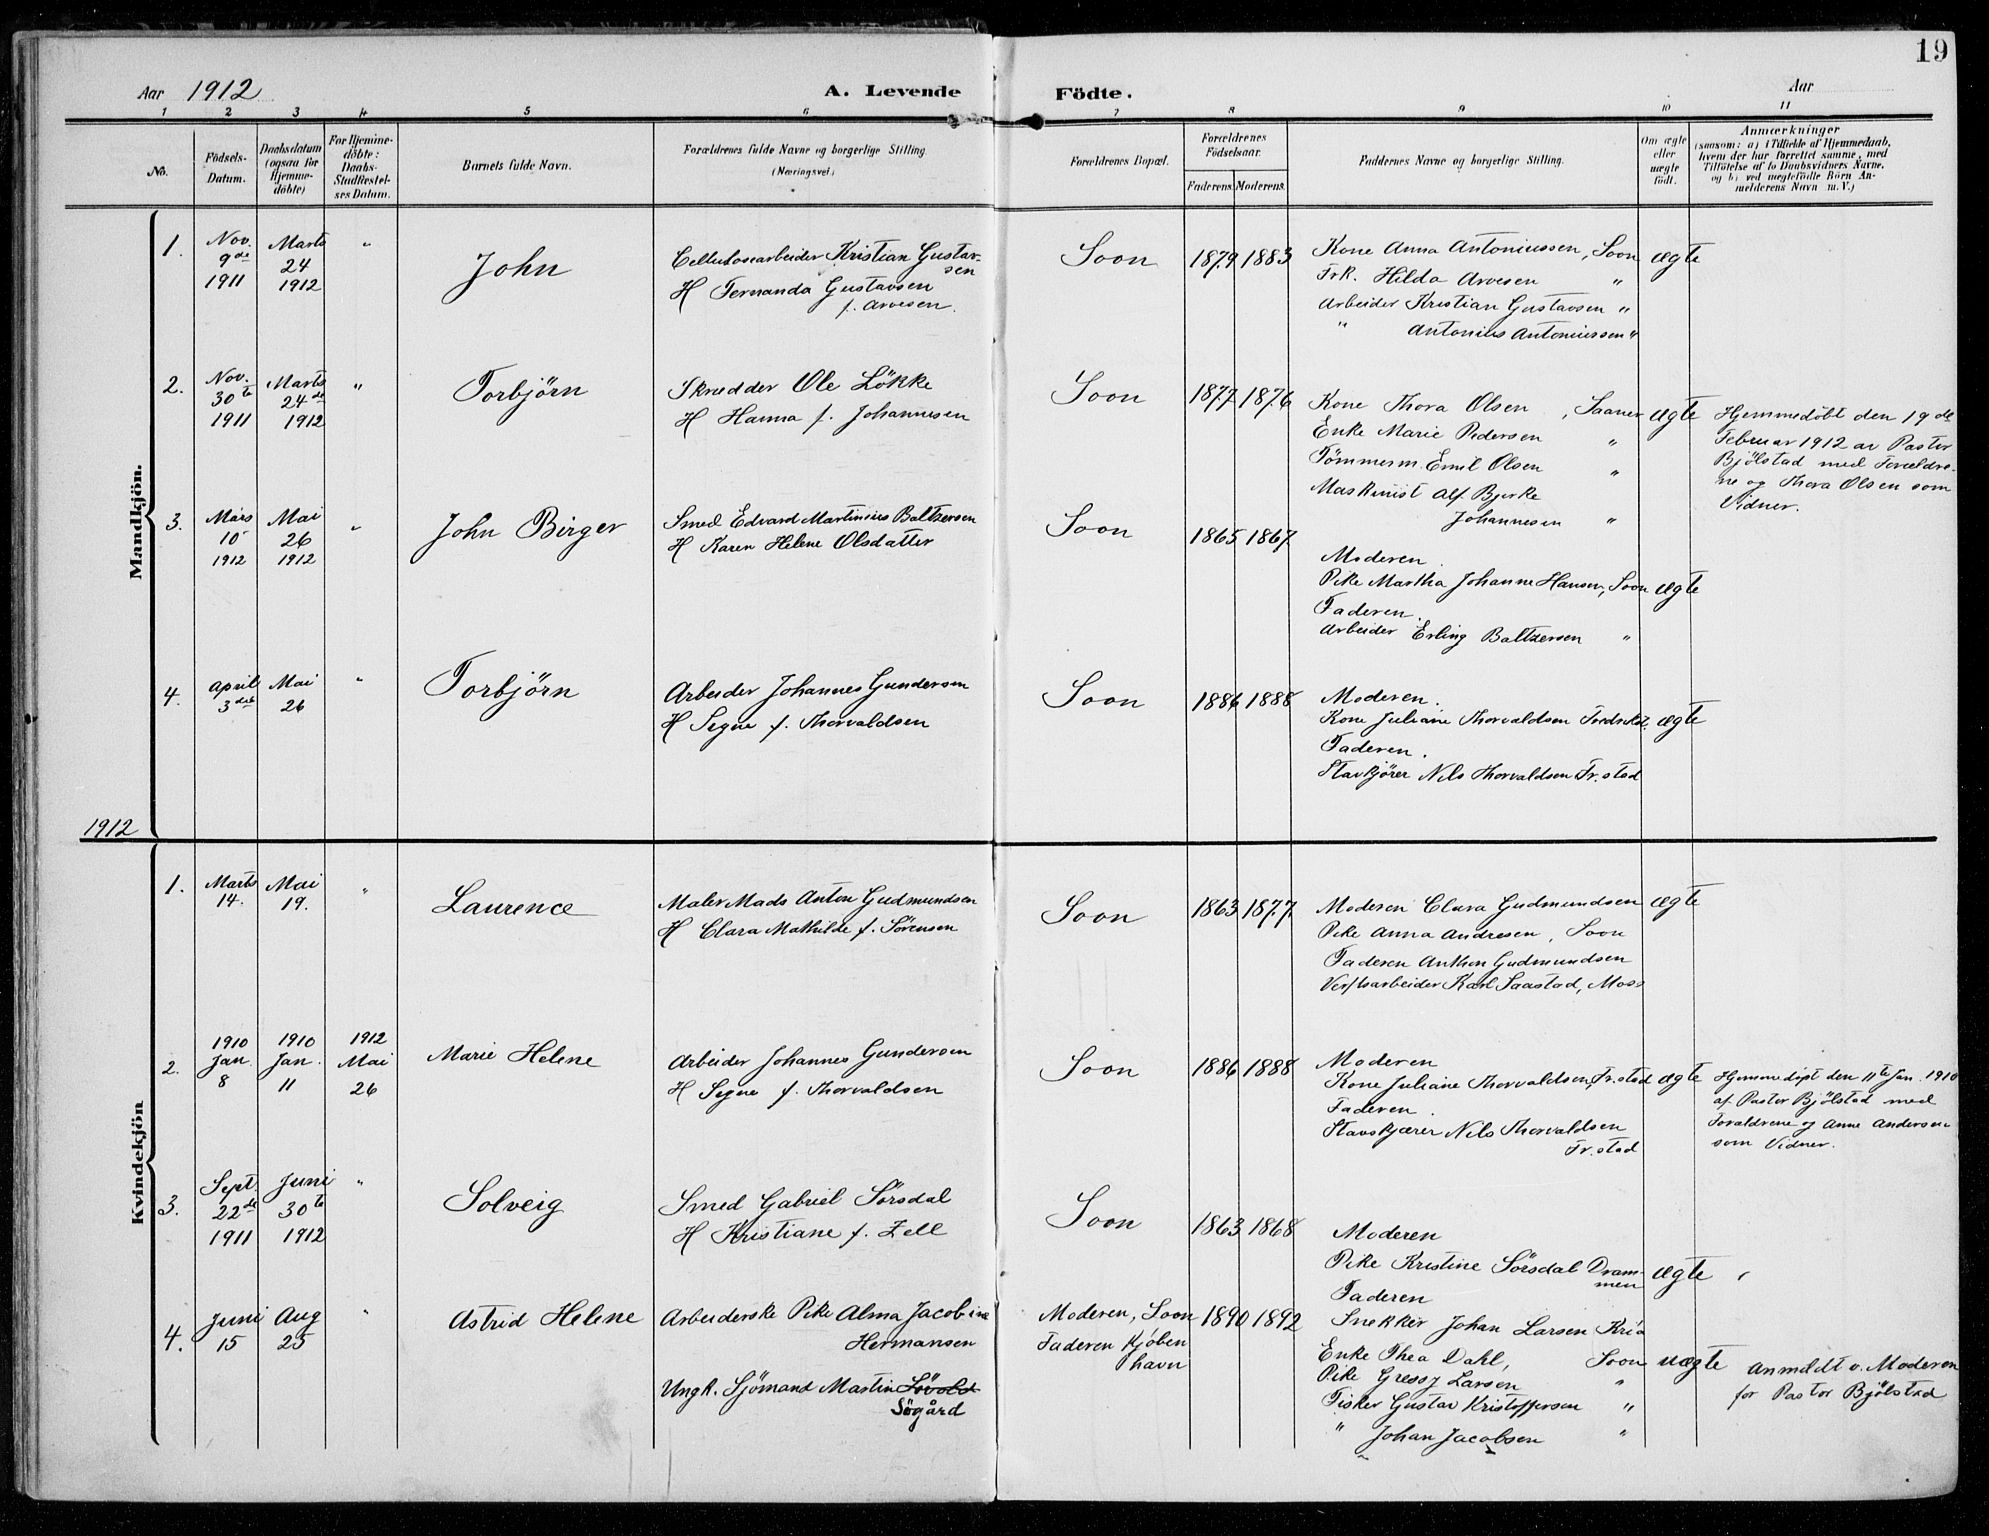 19
Aar 1912
A. Levende Födte.
Aar
1 2 3 4 5 6 7 8 9 10 11
No.
Födsels-
Datum.
Daabsdatum
(ogsaa for
Hjemme-
döbte)
For Hjemme-
döbte:
Daabs-
Stadfæstel-
ses Datum.
Barnets fulde Navn.
Forældrenes fulde Navne og borgerlige Stilling.
(Næringsvei.)
Forældrenes Bopæl.
Forældrenes
Födselsaar.
Faderens. Moderens.
Faddernes Navne og borgerlige Stilling.
Om ægte
eller
uægte
födt.
Anmærkninger
(saasom: a) i Tilfælde af Hjemmedaab,
hvem der har forrettet samme, med
Tilföielse af to Daabsvidners Navne,
og b) ved uægtefödte Börn An-
melderens Navn m. V.)
Mandkjön.
1.
Nov.
9de
1911
Marts
24
1912
"
John
Cellulosearbeider Kristian Gustav-
sen
H Fernanda Gustavsen
f. Arvesen.
Soon
1879 1883
Kone Anna Antoniussen, Soon
Frk. Hilda Arvesen "
Arbeider Kristian Gustavsen "
" Antonius Antoniussen "
ægte
2.
Nov.
30te
1911
Marts
24de
1912
"
Torbjörn
Skredder Ole Lökke
H Hanna f. Johannesen
Soon
1877 1876
Kone Thora Olsen, Saaner
Enke Marie Pedersen "
Tömmerm. Emil Olsen "
Maskinist Alf Bjerke
Johannesen "
ægte
Hjemmedöbt den 19de
Februar 1912 av Pastor
Bjölstad med Forældre-
ne og Thora Olsen som
Vidner.
3.
Mars
10
1912
Mai
26
1912
"
John Birger
Smed Edvard Martinius Baltzersen
H Karen Helene Olsdatter
Soon
1865 1867
Moderen.
Pike Martha Johanne Hansen, Soon
Faderen.
Arbeider Erling Baltzersen "
ægte
4.
April
3die
Mai
26
"
Torbjörn
Arbeider Johannes Gundersen
H Segne f. Thorvaldsen
Soon
1886 1888
Moderen.
Kone Juliane Thorvaldsen Fredrikst.
Faderen.
Stavkjörer Nils Thorvaldsen Fr.stad
ægte
1912
Kvindekjön
1.
Marts
14.
Mai
19.
"
Laurence
Maler Mads Anton Gudmundsen
H Clara Mathilde f. Sörensen
Soon
1863 1877.
Moderen Clara Gudmundsen
Pike Anna Andresen, Soon
Faderen Anthon Gudmundsen
Verftsarbeider Karl Saastad, Moss
ægte
2.
1910
Jan
8
1910
Jan.
11
1912
Mai
26
Marie Helene
Arbeider Johannes Gundersen
H Segne f. Thorvaldsen
Soon
1886 1888
Moderen
Kone Juliane Thorvaldsen, Fr.stad
Faderen.
Stavskjærer Nils Thorvaldsen
Fr.stad
ægte
Hjemmedöpt den 11te Jan. 1910
af Pastor Bjölstad med
Foraldrene og Anne Andersen
som Vidner.
3.
Sept
22de
1911
Juni
30te
1912
"
Solveig
Smed Gabriel Sörsdal
H Kristiane f. Zell
Soon
1863 1868
Moderen
Pike Kristine Sörsdal Dram-
men
Faderen
Snekker Johan Larsen Kria
ægte
4.
Juni
15
Aug
25
"
Astrid Helene
Arbeiderske Pike Alma Jacobine
Hermansen
Ungk. Sjömand Martin Lövold
Sögård
Moderen, Soon
Faderen Kjöben
havn
1890 1892
Enke Thea Dahl, Soon
Pike Gressy Larsen "
Fisker Gustav Kristoffersen "
" Johan Jacobsen "
uægte
Anmeldt v. Moderen
for Pastor Bjölstad